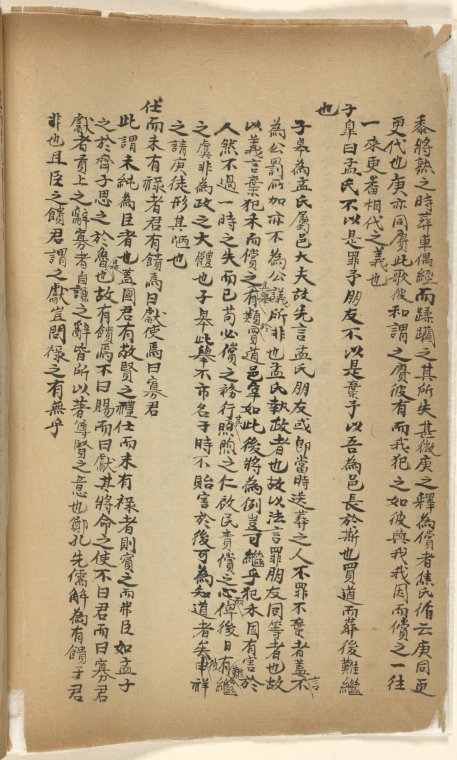 黍將熟之時葬車偶經而蹂躪之其所失甚微庚之釋為償者焦氏循云庚同更
更代也庚亦同賡此歌彼和謂之賡彼有而我犯之如彼與我我因而償之一往
一來更番相代之義也
子皋曰孟氏不以是罪予朋友不以是棄予以吾為邑長於斯也買道而葬後難繼
也
子皋為孟氏屬邑大夫故先言孟氏朋友或即當時送葬之人不罪不棄者蓋不
為公罰所加亦不為公議所非也孟氏執政者也故以法言罪朋友同等者也故
以義言棄犯禾而償之有類買道邑宰如此後將為例豈可繼乎犯禾固有害於
人然不過一時之失而已苟必償之務行煦煦之仁啟民責償之心俾後日有難繼
之虞非為政之大體也子皋此舉不市名于時不貽害於後可為知道者矣申祥
之請庚徒形其陋也
仕而未有祿者君有饋焉曰獻使焉曰寡君
此謂未純為臣者也蓋國君有敬賢之禮仕而未有祿者則賓之而弗臣如孟子
之於齊子思之於魯也故有饋焉不曰賜而曰獻其將命之使不曰君而曰寡君
獻者貢上之辭寡者自謙之辭皆所以著尊賢之意也鄭孔先儒解為有饋于君
非也且臣之饋君謂之獻豈問祿之有無乎